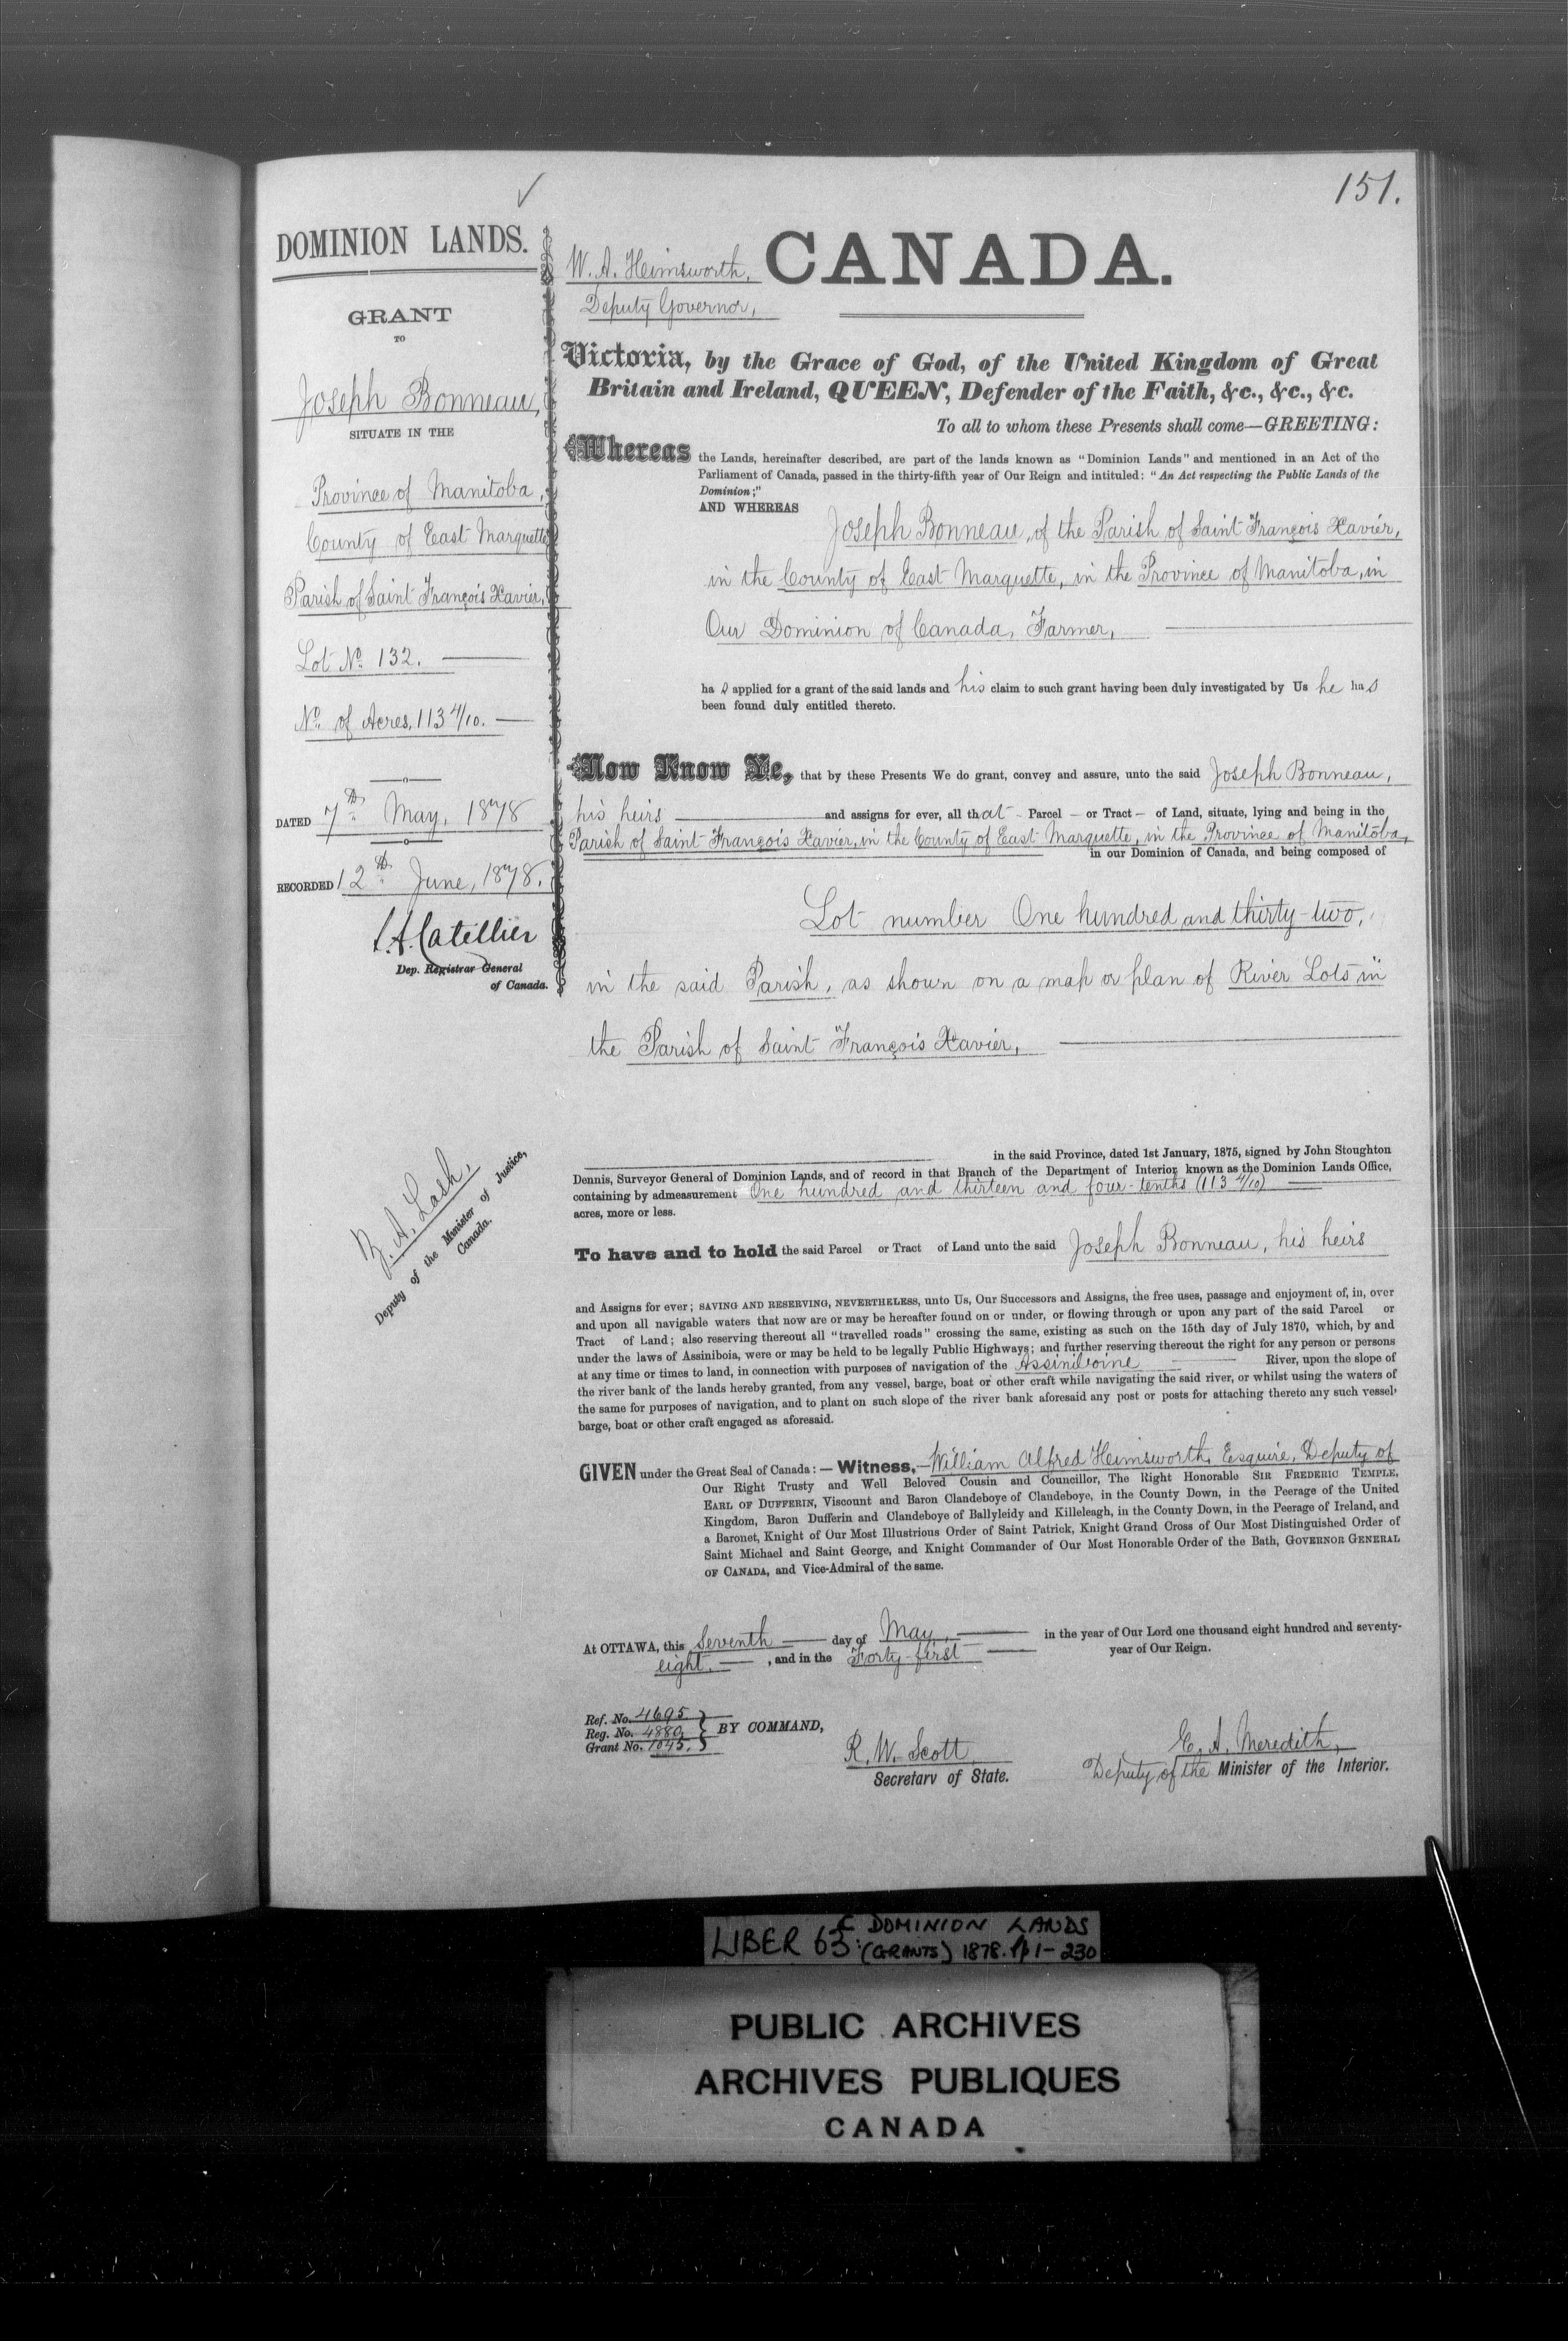 151.
DOMINION LANDS.
GRANT
TO
Joseph Bonneau,
SITUATE IN THE
Province of Manitoba,
County of East Marquette
Parish of Saint François Xavier,
Lot No. 132.
No. of Acres, 113 4/10.
DATED 7th May, 1878
RECORDED 12th June, 1878.
L.A. Catellier
Dep. Registrar General
of Canada.
Z. A. Lash,
Deputy of the Minister of Justice,
Canada.
W. A. Himsworth,
Deputy Governor,
CANADA.
Victoria, by the Grace of God, of the United Kingdom of Great
Britain and Ireland, QUEEN, Defender of the Faith, &c., &c., &c.
To all to whom these Presents shall come—GREETING:
Whereas the Lands, hereinafter described, are part of the lands known as "Dominion Lands" and mentioned in an Act of the
Parliament of Canada, passed in the thirty-fifth year of Our Reign and intituled: "An Act respecting the Public Lands of the
Dominion;"
AND WHEREAS Joseph Bonneau, of the Parish of Saint François Xavier,
in the County of East Marquette, in the Province of Manitoba, in
Our Dominion of Canada, Farmer,
has applied for a grant of the said lands and his claim to such grant having been duly investigated by Us he has
been found duly entitled thereto.
Now Know Ye, that by these Presents We do grant, convey and assure, unto the said Joseph Bonneau,
his heirs and assigns for ever, all that Parcel or Tract of Land, situate, lying and being in the
Parish of Saint François Xavier, in the County of East Marquette, in the Province of Manitoba,
in our Dominion of Canada, and being composed of
Lot number One hundred and thirty-two,
in the said Parish, as shown on a map or plan of River Lots in
the Parish of Saint François Xavier,
in the said Province, dated 1st January, 1875, signed by John Stoughton
Dennis, Surveyor General of Dominion Lands, and of record in that Branch of the Department of Interior known as the Dominion Lands Office,
containing by admeasurement One hundred and thirteen and four-tenths (113 4/10)
acres, more or less.
To have and to hold the said Parcel or Tract of Land unto the said Joseph Bonneau, his heirs
and Assigns for ever; SAVING AND RESERVING, NEVERTHELESS, unto Us, Our Successors and Assigns, the free uses, passage and enjoyment of, in, over
and upon all navigable waters that now are or may be hereafter found on or under, or flowing through or upon any part of the said Parcel or
Tract of Land; also reserving thereout all "travelled roads" crossing the same, existing as such on the 15th day of July 1870, which, by and
under the laws of Assiniboia, were or may be held to be legally Public Highways; and further reserving thereout the right for any person or persons
at any time or times to land, in connection with purposes of navigation of the Assiniboine River, upon the slope of
the river bank of the lands hereby granted, from any vessel, barge, boat or other craft while navigating the said river, or whilst using the waters of
the same for purposes of navigation, and to plant on such slope of the river bank aforesaid any post or posts for attaching thereto any such vessel,
barge, boat or other craft engaged as aforesaid.
GIVEN under the Great Seal of Canada:— Witness,—William Alfred Himsworth, Esquire, Deputy of
Our Right Trusty and Well Beloved Cousin and Councillor, The Right Honorable SIR FREDERIC TEMPLE,
EARL OF DUFFERIN, Viscount and Baron Clandeboye of Clandeboye, in the County Down, in the Peerage of the United
Kingdom, Baron Dufferin and Clandeboye of Ballyleidy and Killeleagh, in the County Down, in the Peerage of Ireland, and
a Baronet, Knight of Our Most Illustrious Order of Saint Patrick, Knight Grand Cross of Our Most Distinguished Order of
Saint Michael and Saint George, and Knight Commander of Our Most Honorable Order of the Bath, GOVERNOR GENERAL
OF CANADA, and Vice-Admiral of the same.
At OTTAWA, this Seventh day of May, in the year of Our Lord one thousand eight hundred and seventy-
eight, , and in the Forty-first year of Our Reign.
Ref. No. 4695
Reg. No. 4880
Grant No. 1045.
BY COMMAND,
R. W. Scott
Secretary of State.
E. A. Meredith,
Deputy of the Minister of the Interior.
LIBER 63: C DOMINION LANDS
(GRANTS) 1878. pp 1-230
PUBLIC ARCHIVES
ARCHIVES PUBLIQUES
CANADA